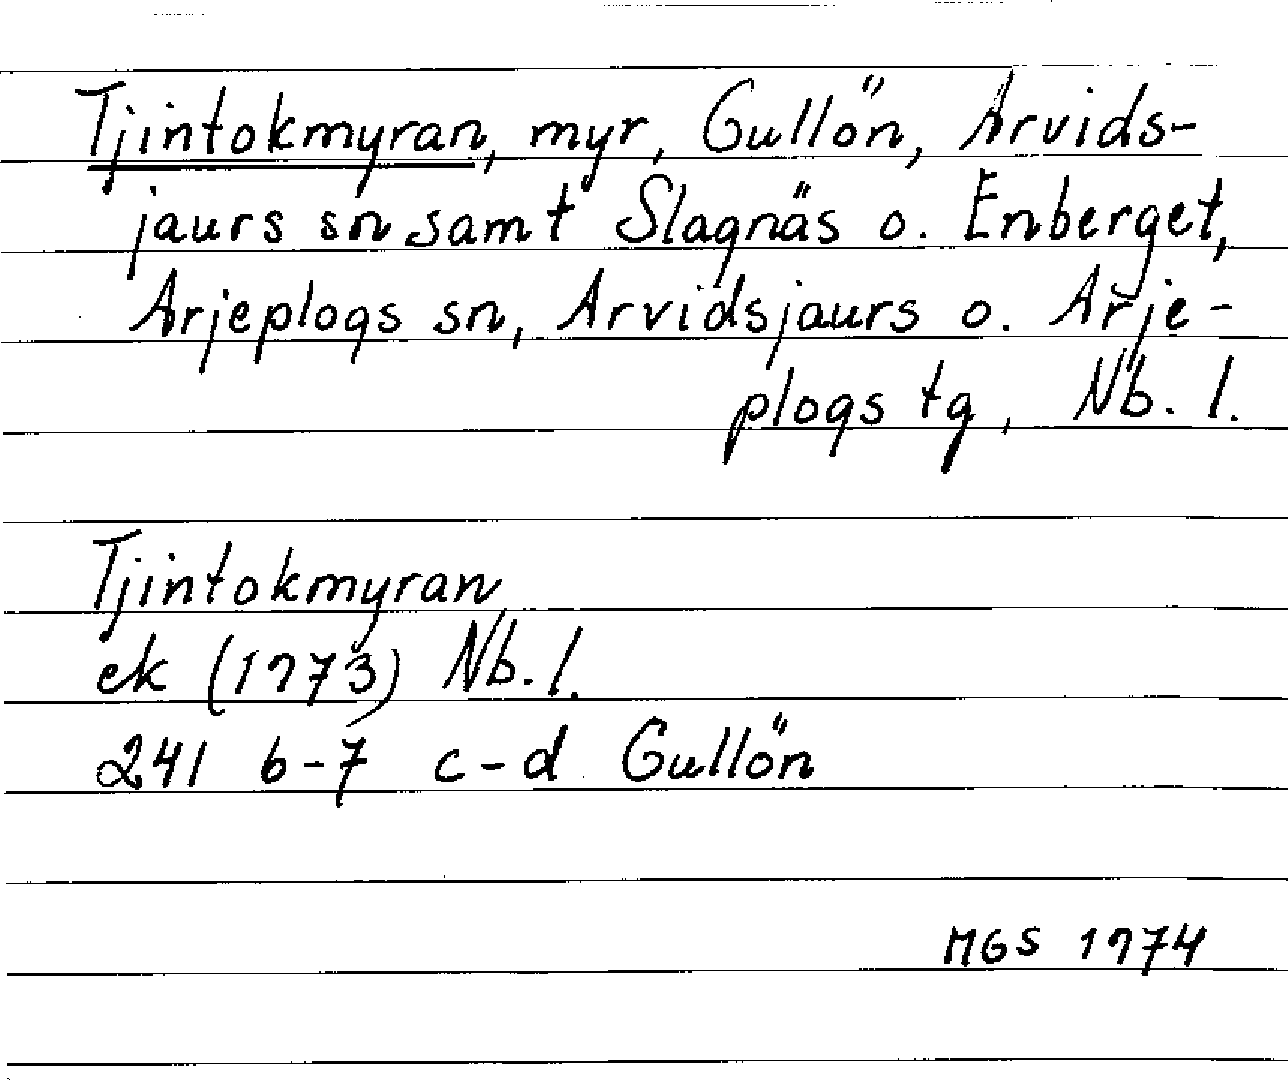 Tjintokmyran, myr, Gullön, Arvids-
jaurs sn samt Slagnäs o. Enberget,
Arjeplogs sn, Arvidsjaurs o. Arje-
plogs tg, Nb. l.
Tjintokmyran
ek (1973) Nb. l.
241 6-7 c-d Gullön
MGS 1974